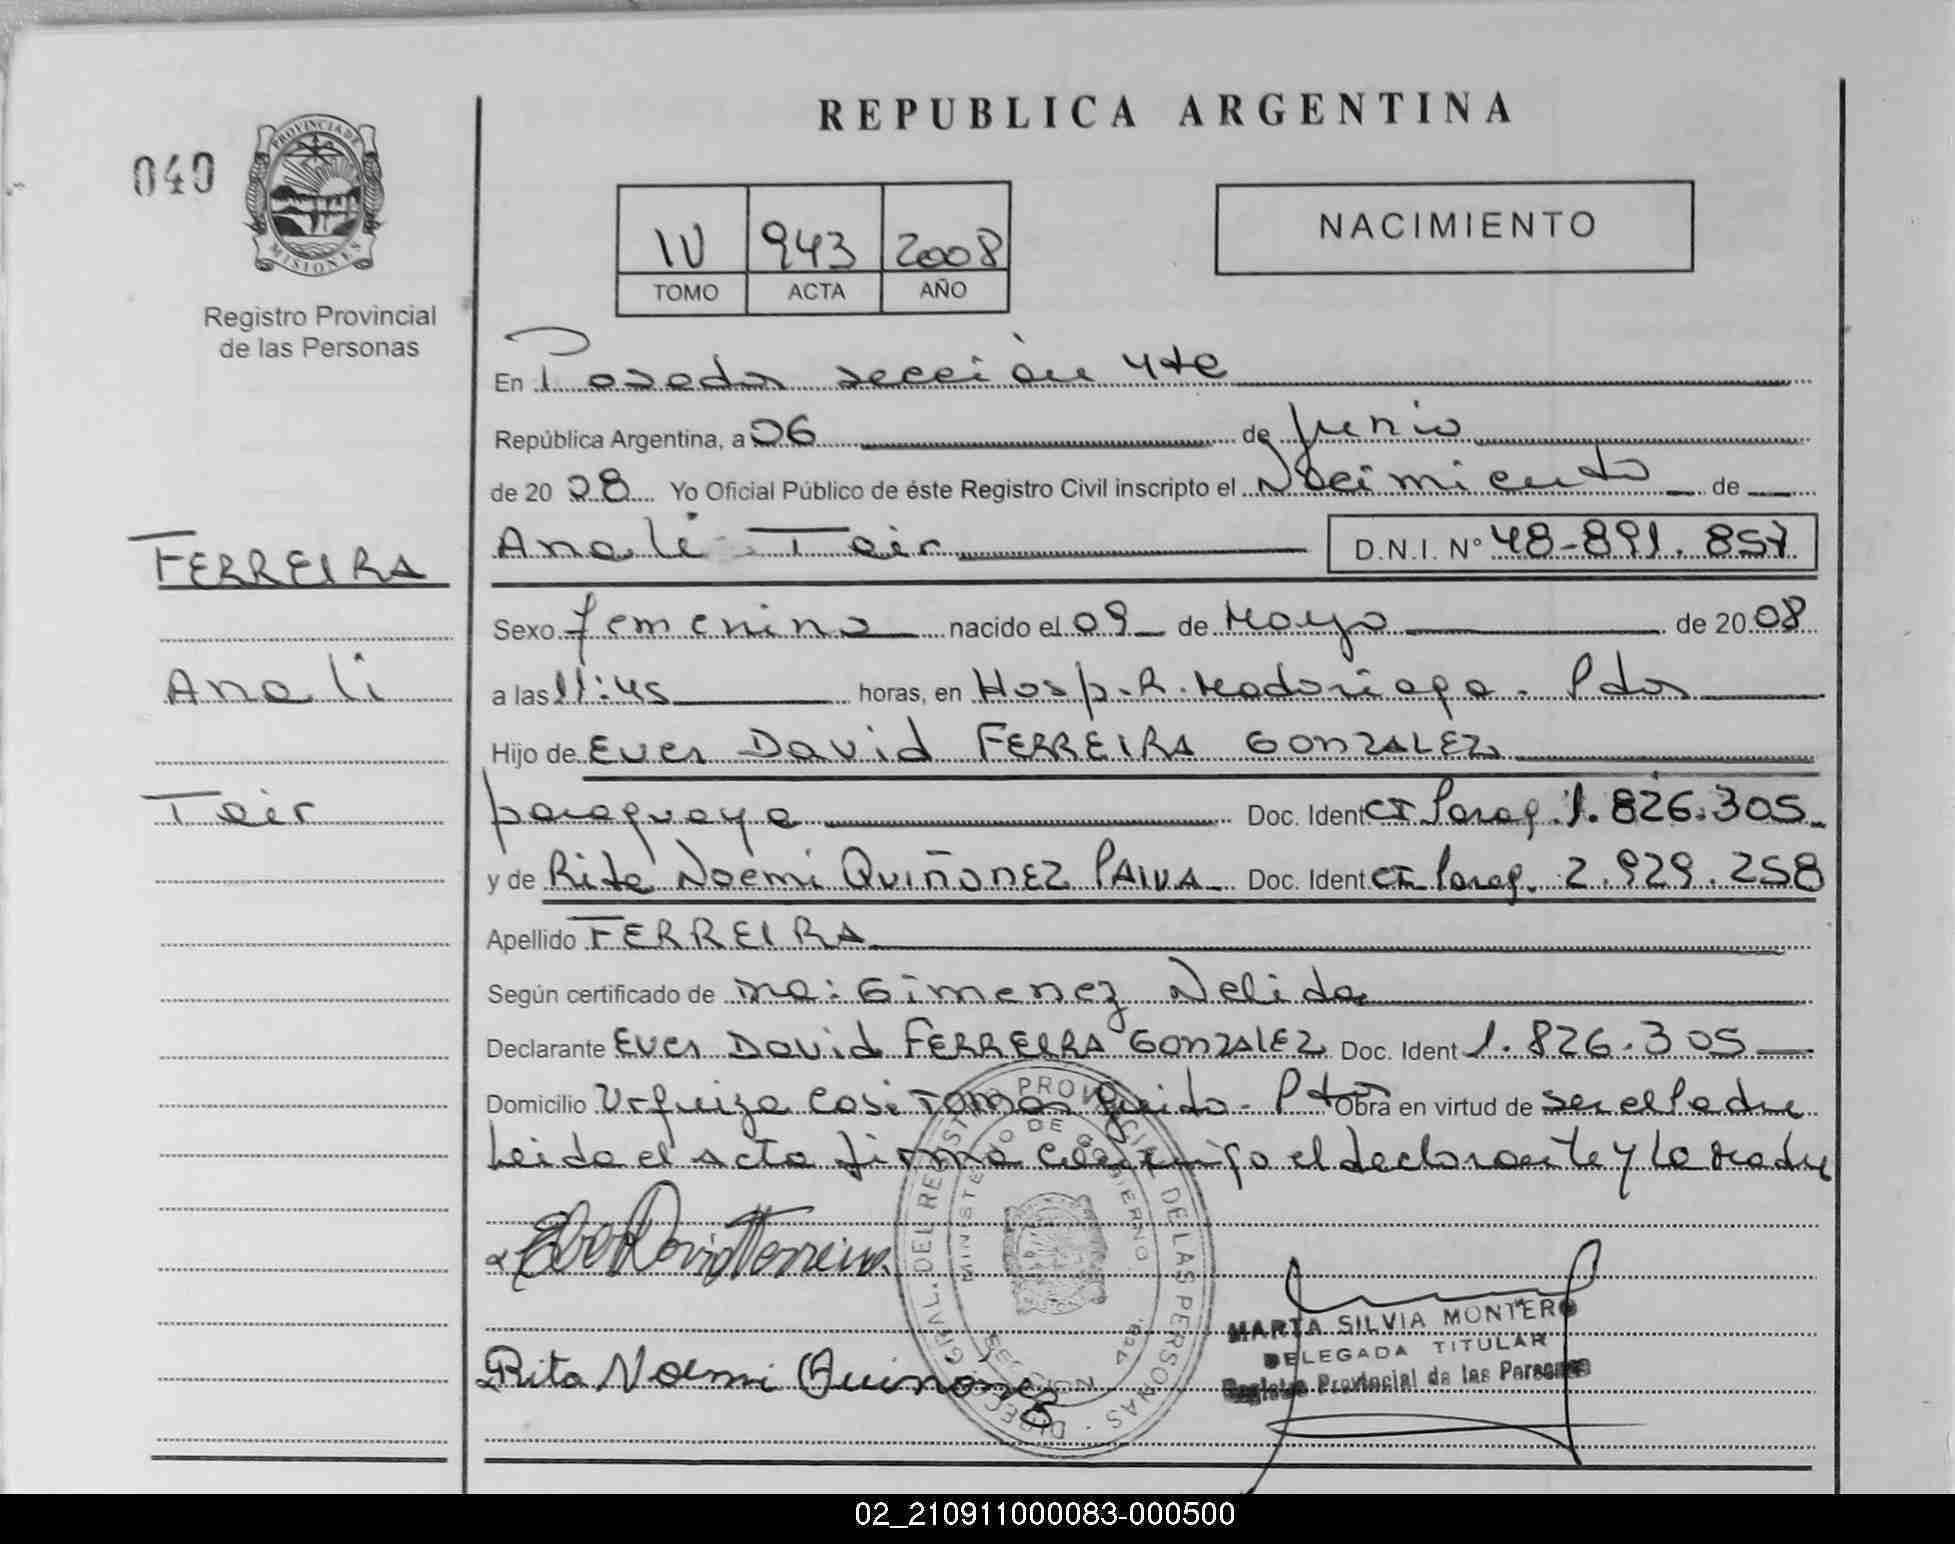 REPUBLICA ARGENTINA
040
PROVINCIA DE
MISIONES
Registro Provincial
de las Personas
IV 943 2008
TOMO ACTA AÑO
NACIMIENTO
En Posadas sección 4ta
República Argentina, a 06 de Junio
de 20 08 Yo Oficial Público de éste Registro Civil inscripto el Nacimiento de
FERREIRA
Anali Tair
Anali Tair D.N.I. Nº 48-891.857
Sexo femenino nacido el 09 de Mayo de 20 08
a las 11:45 horas, en Hosp. R. Madariaga. Pdas
Hijo de Ever David FERREIRA GONZALEZ
paraguaya Doc. Ident CI Parag. 1.826.305
y de Rita Noemi QUIÑONEZ PAIVA Doc. Ident CI Parag. 2.929.258
Apellido FERREIRA
Según certificado de Gimenez Nelida
Declarante Ever David FERREIRA GONZALEZ Doc. Ident 1.826.305
Domicilio Urquiza casi Tomas Guido - Pdas Obra en virtud de ser el Padre
Leida el acta firma conmigo el declarante y la Madre
Ever David Ferreira
Rita Noemi Quiñonez
DIRECC. GRAL. DEL REGISTRO PROVINCIAL DE LAS PERSONAS
MINISTERIO DE GOBIERNO
SECCION 4ta.
MARTA SILVIA MONTERO
DELEGADA TITULAR
Registro Provincial de las Personas
02_210911000083-000500